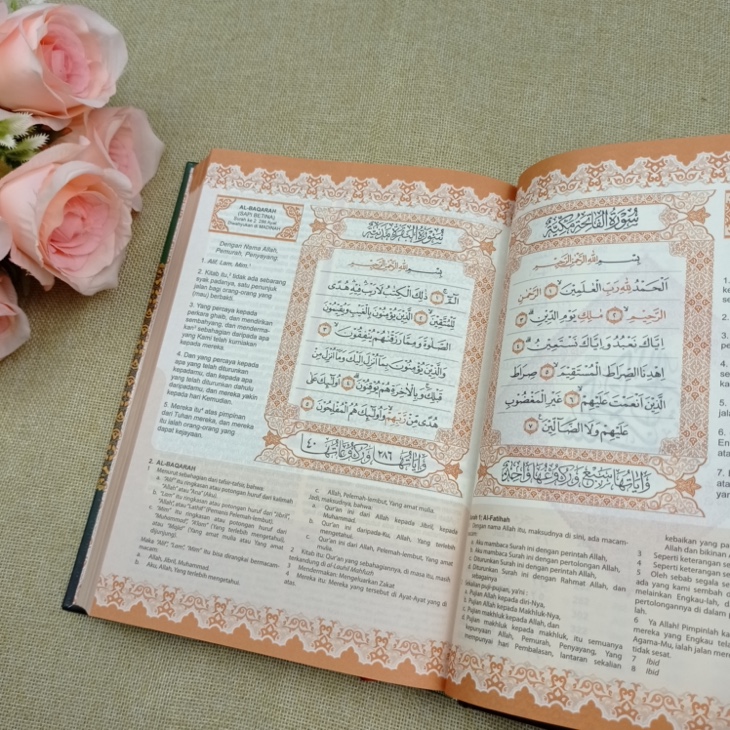 AL-BAQARAH
(SAPI BETINA)
Surah ke 2: 286 Ayat
Diwahyukan di MADINAH
Dengan Nama Allah,
Pemurah, Penyayang.
1. Alif, Lam, Mim.¹
2. Kitab itu,² tidak ada sebarang
syak padanya, satu penunjuk
jalan bagi orang-orang yang
(mau) berbakti.
3. Yang percaya kepada
perkara ghaib, dan mendirikan
sembahyang, dan menderma-
kan³ sebahagian daripada apa
yang Kami telah kurniakan
kepada mereka
4. Dan yang percaya kepada
apa yang telah diturunkan
kepadamu, dan kepada apa
yang telah diturunkan dahulu
daripadamu, dan mereka yakin
kepada hari Kemudian.
5. Mereka itu⁴ atas pimpinan
dari Tuhan mereka, dan mereka
itu ialah orang-orang yang
dapat kejayaan.
سُورَةُ الْبَقَرَةِ مَدَنِيَّةٌ
بِسْمِ اللهِ الرَّحْمٰنِ الرَّحِيْمِ
الٓمّٓ ١ ذٰلِكَ الْكِتٰبُ لَا رَيْبَ فِيْهِ هُدًى
لِّلْمُتَّقِيْنَ ٢ الَّذِيْنَ يُؤْمِنُوْنَ بِالْغَيْبِ وَيُقِيْمُوْنَ
الصَّلٰوةَ وَمِمَّا رَزَقْنٰهُمْ يُنْفِقُوْنَ ٣
وَالَّذِيْنَ يُؤْمِنُوْنَ بِمَآ اُنْزِلَ اِلَيْكَ وَمَآ اُنْزِلَ مِنْ
قَبْلِكَ وَبِالْاٰخِرَةِ هُمْ يُوْقِنُوْنَ ٤ اُولٰٓئِكَ عَلٰى
هُدًى مِّنْ رَّبِّهِمْ وَاُولٰٓئِكَ هُمُ الْمُفْلِحُوْنَ ٥
وَاٰيَاتُهَا ٢٨٦ وَرُكُوْعَاتُهَا ٤٠
2. AL-BAQARAH
1 Menurut sebahagian dari tafsir-tafsir, bahwa:
a. "Alif" itu ringkasan atau potongan huruf dari kalimah "Allah" atau "Ana" (Aku).
b. "Lam" itu ringkasan atau potongan huruf dari "Jibril", "Allah", atau "Lathif" (Pelemah-lembut).
c. "Mim" itu ringkasan atau potongan huruf dari "Muhammad", "A'lam" (Yang terlebih mengetahui), atau "Majid" (Yang amat mulia atau Yang amat dijunjung).
Maka "Alif", "Lam", "Mim" itu bisa dirangkai bermacam-
macam:
a. Allah, Jibril, Muhammad.
b. Aku, Allah, Yang terlebih mengetahui.
c. Allah, Pelemah-lembut, Yang amat mulia.
Jadi, maksudnya, bahwa:
a. Qur'an ini dari Allah kepada Jibril, kepada
Muhammad.
b. Qur'an ini daripada-Ku, Allah, Yang terlebih
mengetahui.
c. Qur'an ini dari Allah, Pelemah-lembut, Yang amat
mulia.
2 Kitab itu: Qur'an yang sebahagiannya, di masa itu, masih
terkandung di al-Lauhil Mahfuzh.
3 Mendermakan: Mengeluarkan Zakat
4 Mereka itu: Mereka yang tersebut di Ayat-Ayat yang di
atas.
سُورَةُ الْفَاتِحَةِ مَكِّيَّةٌ
بِسْمِ اللهِ الرَّحْمٰنِ الرَّحِيْمِ
اَلْحَمْدُ لِلّٰهِ رَبِّ الْعٰلَمِيْنَ ١ الرَّحْمٰنِ
الرَّحِيْمِ ٢ مٰلِكِ يَوْمِ الدِّيْنِ ٣
اِيَّاكَ نَعْبُدُ وَاِيَّاكَ نَسْتَعِيْنُ ٤
اِهْدِنَا الصِّرَاطَ الْمُسْتَقِيْمَ ٥ صِرَاطَ
الَّذِيْنَ اَنْعَمْتَ عَلَيْهِمْ ٦ غَيْرِ الْمَغْضُوْبِ
عَلَيْهِمْ وَلَا الضَّآلِّيْنَ ٧
وَاٰيَاتُهَا سَبْعٌ وَرُكُوْعُهَا وَاحِدٌ
1: Al-Fatihah
Dengan nama Allah itu, maksudnya di sini, ada macam-
macam:
a. Aku membaca Surah ini dengan perintah Allah,
b. Aku membaca Surah ini dengan pertolongan Allah,
c. Diturunkan Surah ini dengan perintah Allah,
d. Diturunkan Surah ini dengan Rahmat Allah, dan
sebagainya
Segala puji-pujian, ya'ni:
a. Pujian Allah kepada diri-Nya,
b. Pujian Allah kepada Makhluk-Nya,
c. Pujian makhluk kepada Allah, dan
d. Pujian makhluk kepada makhluk, itu semuanya
kepunyaan Allah, Pemurah, Penyayang, Yang
mempunyai hari Pembalasan, lantaran sekalian
kebaikan yang
Allah dan bikinan
3 Seperti keterangan
4 Seperti keterangan
5 Oleh sebab segala
ada yang kami sembah
melainkan Engkau-lah,
pertolongannya di dalam
lah.
6 Ya Allah! Pimpinlah
mereka yang Engkau
Agama-Mu, ialah jalan
tidak sesat.
7 Ibid
8 Ibid